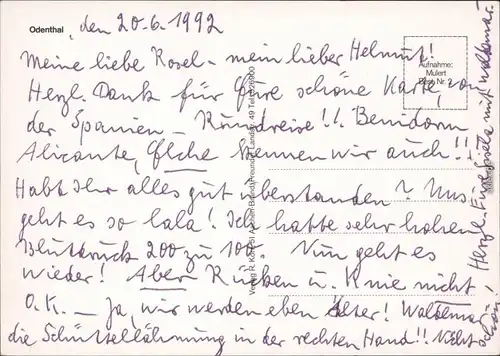 Odenthal, den 20.6.1992
Meine liebe Rosel – mein lieber Helmut!
Herzl. Dank für Eure schöne Karte von
der Spanien – Rundreise!!. Benidorm,
Alicante, Elche kennen wir auch!!
Habt Ihr alles gut überstanden? Uns
geht es so lala! Ich hatte sehr hohen
Blutdruck 200 zu 100. Nun geht es
wieder! Aber Rücken u. Knie nicht
O.K. – Ja, wir werden eben älter! Waldemar
die Schüttellähmung in der rechten Hand!! Nicht
schön!
Herzl. Grüße mit Waldemar
Aufnahme:
Mulert
Best. Nr.
Verlag R. Landau, 49 Tel.